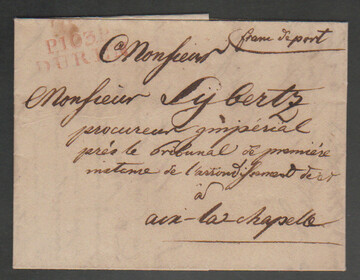 P103P
DUREN
franc de port
Monsieur
Monsieur Sybertz
procureur impérial
près le tribunal de première
instance de l'arrondissement de
à
aix-la-chapelle